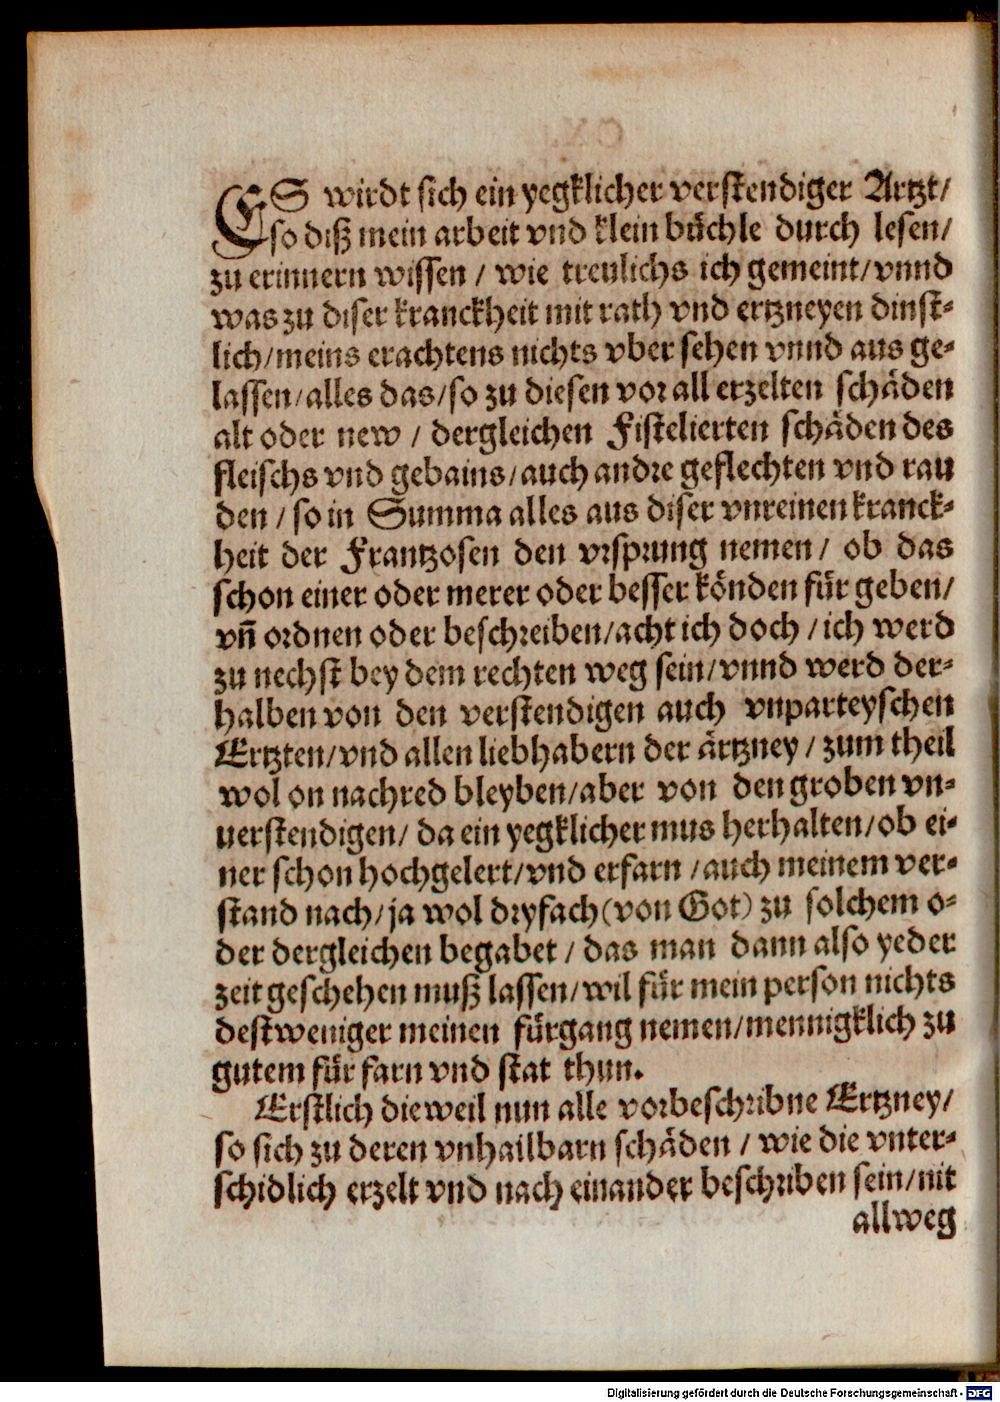 ES wirdt sich ein yegklicher verstendiger Artzt/
so diß mein arbeit vnd klein büchle durch lesen/
zu erinnern wissen / wie treulichs ich gemeint/vnnd
was zu diser kranckheit mit rath vnd ertzneyen dinst-
lich/meins erachtens nichts vber sehen vnnd aus ge-
lassen/alles das/so zu diesen vor all erzelten schäden
alt oder new / dergleichen Fistelierten schäden des
fleischs vnd gebains/auch andre geflechten vnd rau
den / so in Summa alles aus diser vnreinen kranck-
heit der Frantzosen den vrsprung nemen/ ob das
schon einer oder merer oder besser könden für geben/
vn̄ ordnen oder beschreiben/acht ich doch / ich werd
zu nechst bey dem rechten weg sein/vnnd werd der-
halben von den verstendigen auch vnparteyschen
Ertzten/vnd allen liebhabern der ärtzney / zum theil
wol on nachred bleyben/aber von den groben vn-
uerstendigen/ da ein yegklicher mus herhalten/ob ei-
ner schon hochgelert/vnd erfarn /auch meinem ver-
stand nach/ja wol dryfach (von Got) zu solchem o-
der dergleichen begabet / das man dann also yeder
zeit geschehen muß lassen/wil für mein person nichts
destweniger meinen fürgang nemen/mennigklich zu
gutem für farn vnd stat thun.
Erstlich dieweil nun alle vorbeschribne Ertzney/
so sich zu deren vnhailbarn schäden / wie die vnter-
schidlich erzelt vnd nach einander beschriben sein/nit
allweg
Digitalisierung gefördert durch die Deutsche Forschungsgemeinschaft - DFG